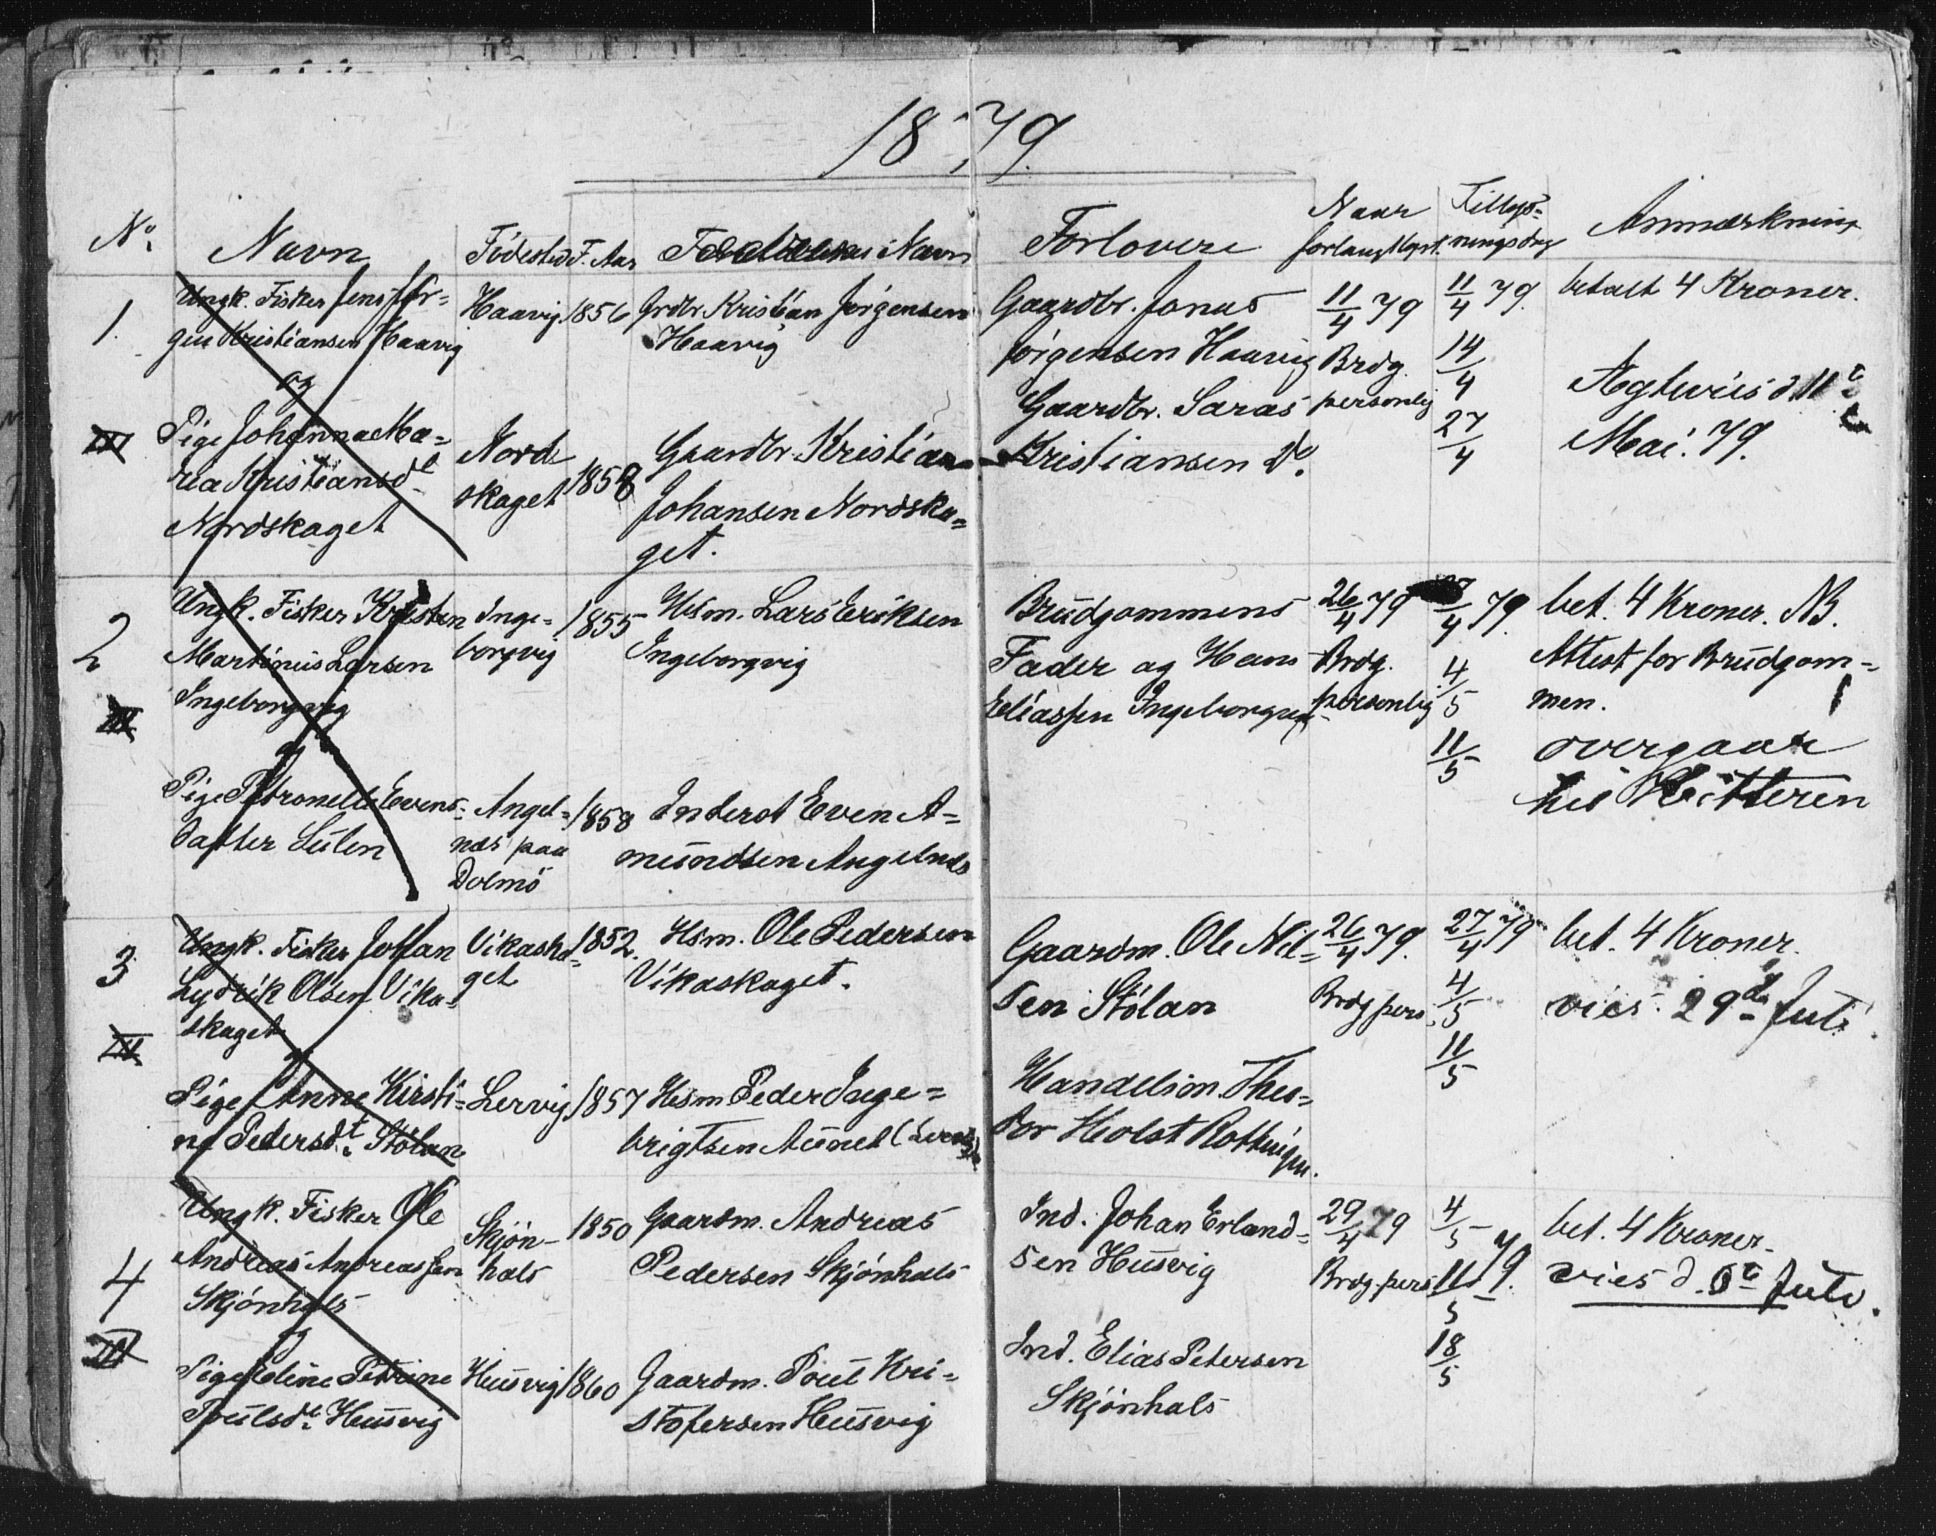 1879.
No. Navn Födested F. Aar Forældrenes Navn Forlovere Naar forlangt lyst. Tillys-ningsdag Anmærkning
1.
III
Ungk. Fisker Jens Jör-
gen Kristiansen Haavig
og
Pige Johanna Ma-
ria Kristiansdt.
Nordskaget
Haavig
Nord-
skaget
1856
1858
Grdbr Kristian Jørgensen
Haavig
Gaardbr. Kristian
Johansen Nordska-
get.
Gaardbr. Jonas
Jörgensen Haavig
Gaardbr. Saras
Kristiansen Do.
11/4 79
Brdg.
personlig
11/4 79.
14/4
27/4
betalt 4 Kroner.
Ægtevies d. 11te
Mai. 79.
2
III
Ungk. Fisker Kristen
Martinus Larsen
Ingeborgvig
og
Pige Petronelle Evens-
datter Sulen
Inge-
borgvig
Angel-
næs paa
Dolmö
1855
1858
Hsm. Lars Eriksen
Ingeborgvig
Inderst Even A-
mundsen Angelnæs
Brudgommens
Fader og Hans
Eliassen Ingeborgvig
26/4 79
Brdg.
personlig
27/4 79.
4/5
11/5
bet. 4 Kroner. NB.
Attest for Brudgom-
men.
overgaar
til Hitteren
3
III
Ungk. Fisker Johan
Lydrik Olsen Vika-
skaget
og
Pige Anne Kirsti-
ne Pedersdt. Stölan
Vikaska-
get
Lervig
1852.
1857
Hsm. Ole Pedersen
Vikaskaget.
Hsm Peder Inge-
brigtsen Aunet (Lervig)
Gaardm. Ole Nil-
sen Stölan
Handelsm. Theo-
dor Holst Rottingen.
26/4 79.
Brdg pers.
27/4 79
4/5
11/5
bet. 4 Kroner.
vies. 29de Juli
4
III
Ungk. Fisker Ole
Andreas Andreassen
Skjönhals
og
Pige Eline Petrine
Poulsdt. Husvig
Skjön-
hals
Husvig
1850
1860
Gaardm. Andreas
Pedersen Skjönhals
Gaardm. Poul Kri-
stofersen Husvig
Ind. Johan Erland-
sen Husvig
Ind. Elias Petersen
Skjönhals
29/4 79
Brdg. pers
4/5 79.
11/5
18/5
bet. 4 Kroner.
vies d. Juli.